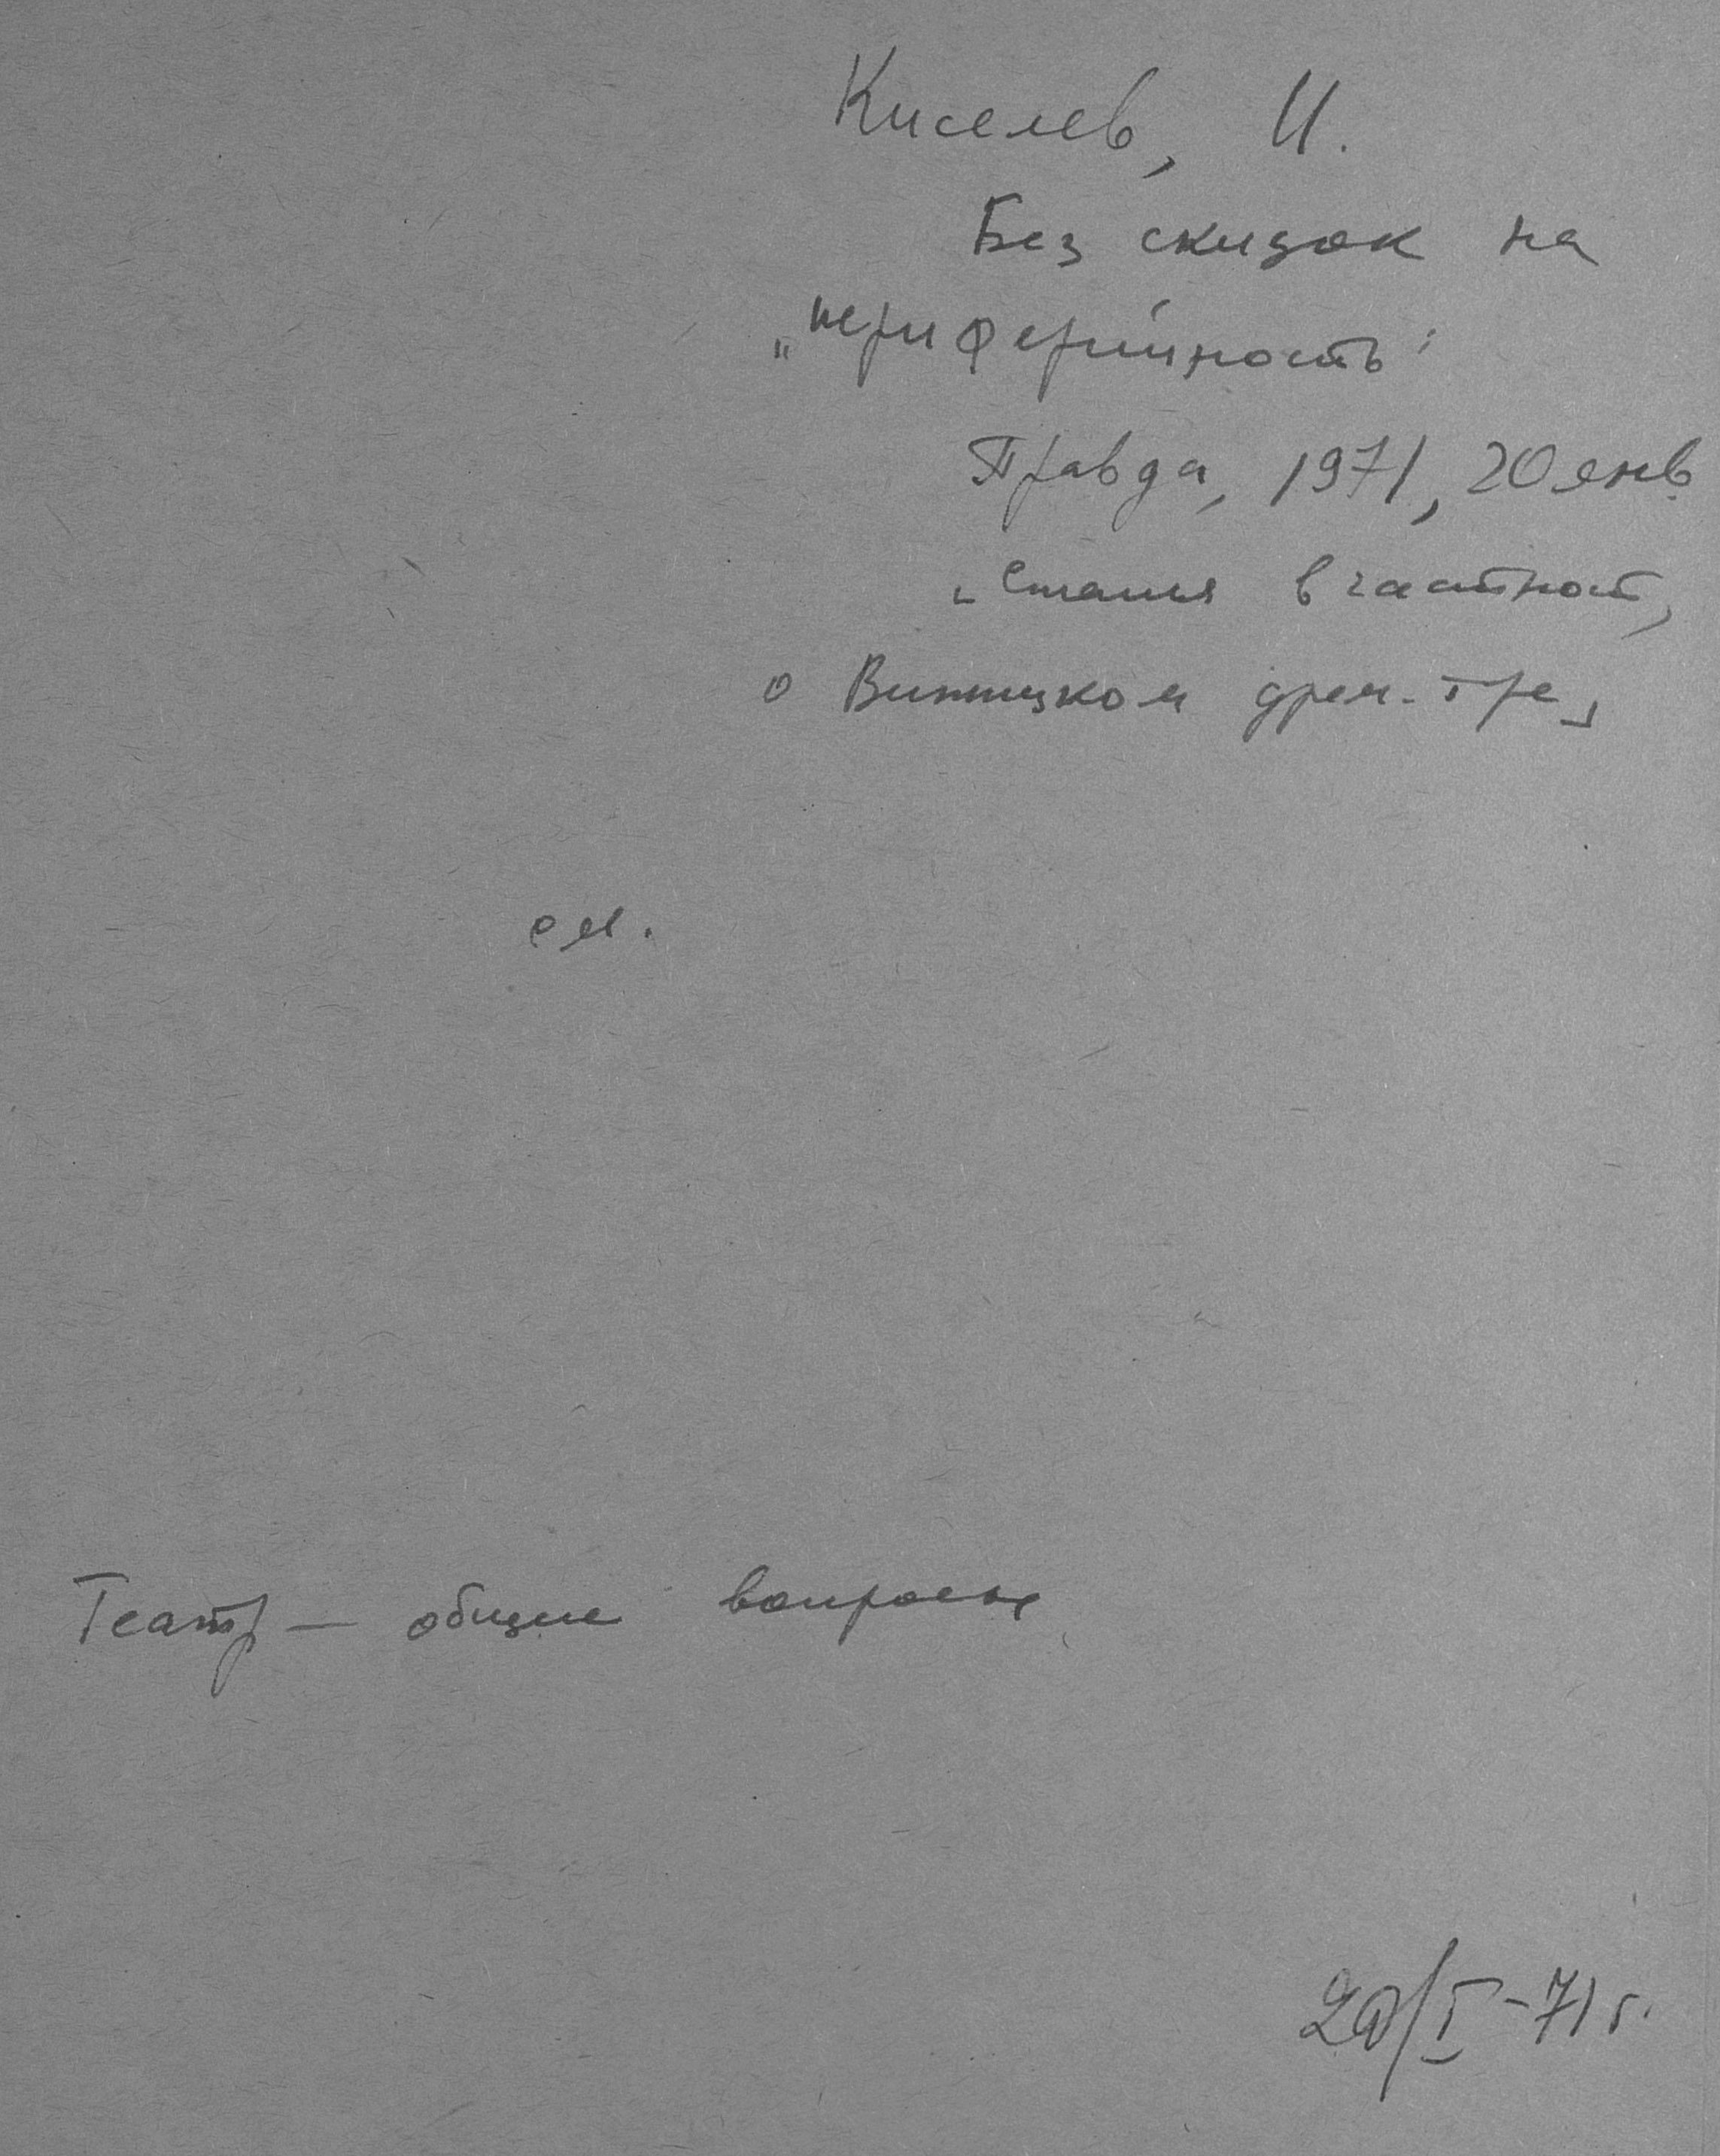 Киселев, И.
Без скидок на
„периферийность"
Правда, 1971, 20 янв.
[Статья в частност,
о Винницком драм. т-ре]
см.
Театр — общие вопросы
20/I-71 г.